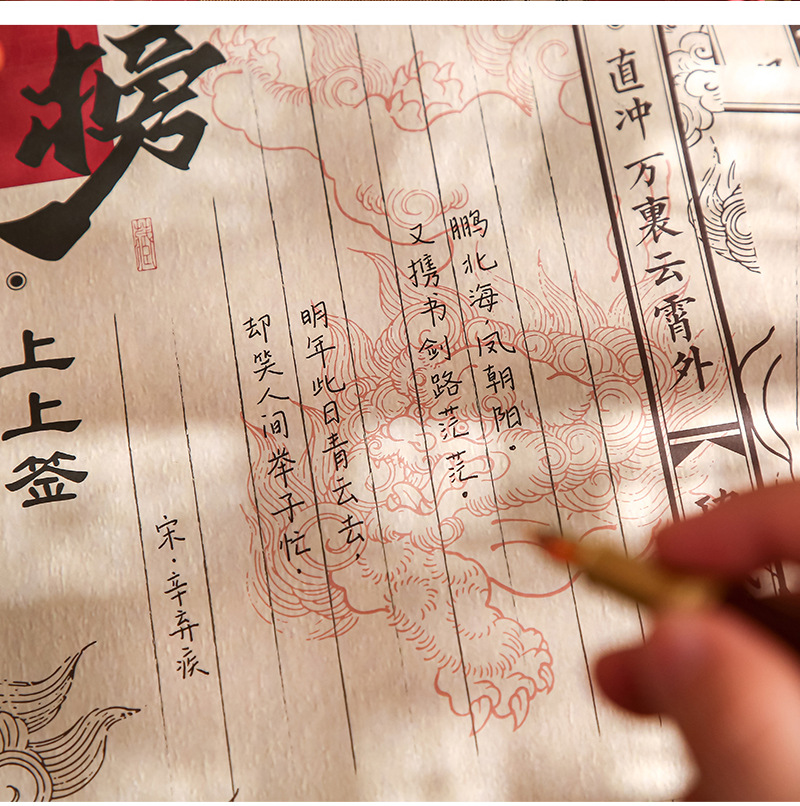 直冲万裏云霄外
鹏北海,凤朝阳。
又携书剑路茫茫。
明年此日青云去,
却笑人间举子忙.
宋·辛弃疾
榜
上上签